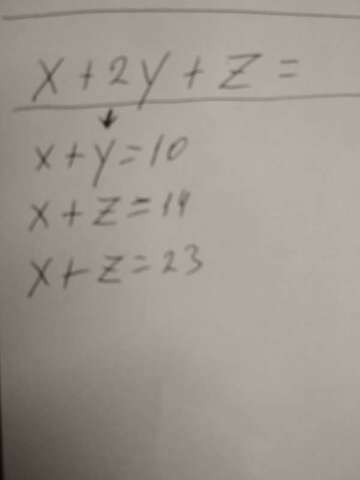 x + 2y + z =
x + y = 10
x + z = 14
x + z = 23